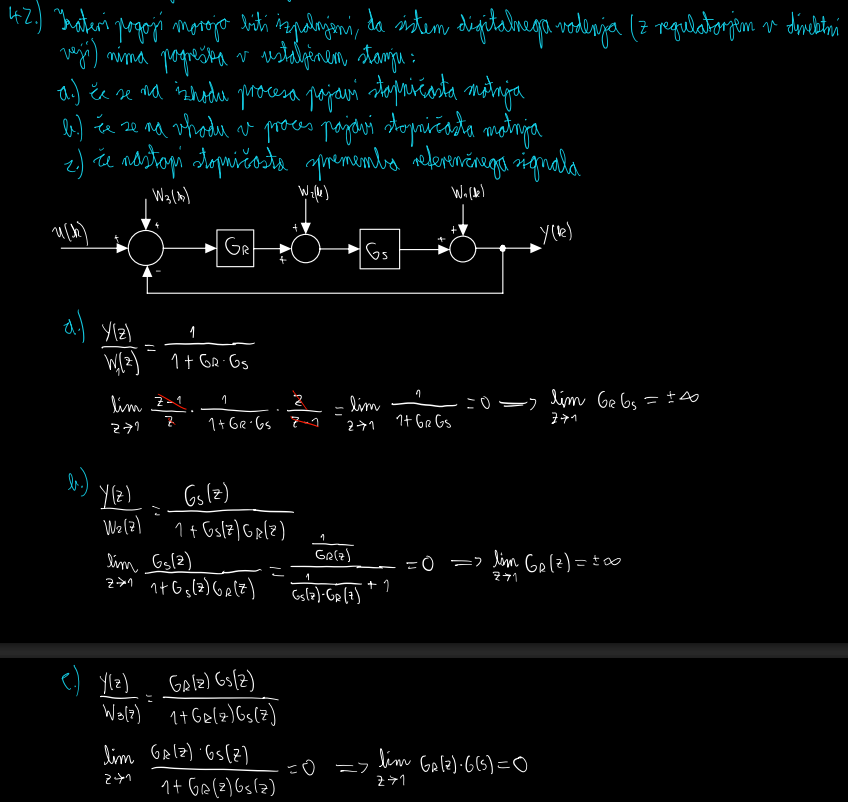 42.) Kateri pogoji morajo biti izpolnjeni, da sistem digitalnega vodenja (z regulatorjem v direktni
veji) nima pogreška v ustaljenem stanju:
a.) če se na izhodu procesa pojavi stopničasta motnja
b.) če se na vhodu v proces pojavi stopničasta motnja
c.) če nastopi stopničasta sprememba referenčnega signala
W₃(k) W₂(k) W₁(k)
u(k) + + - GR + + GS + + Y(k)
a.) Y(z)/W₁(z) = 1/(1 + GR·GS)
lim z→1 (z-1)/z · 1/(1 + GR·GS) · z/(z-1) = lim z→1 1/(1 + GRGS) = 0 → lim z→1 GRGS = ±∞
b.) Y(z)/W₂(z) = GS(z)/(1 + GS(z)GR(z))
lim z→1 GS(z)/(1 + GS(z)GR(z)) = (1/GR(z))/(1/(GS(z)·GR(z)) + 1) = 0 ⇒ lim z→1 GR(z) = ±∞
c.) Y(z)/W₃(z) = GR(z)GS(z)/(1 + GR(z)GS(z))
lim z→1 GR(z)·GS(z)/(1 + GR(z)GS(z)) = 0 ⇒ lim z→1 GR(z)·G(S) = 0